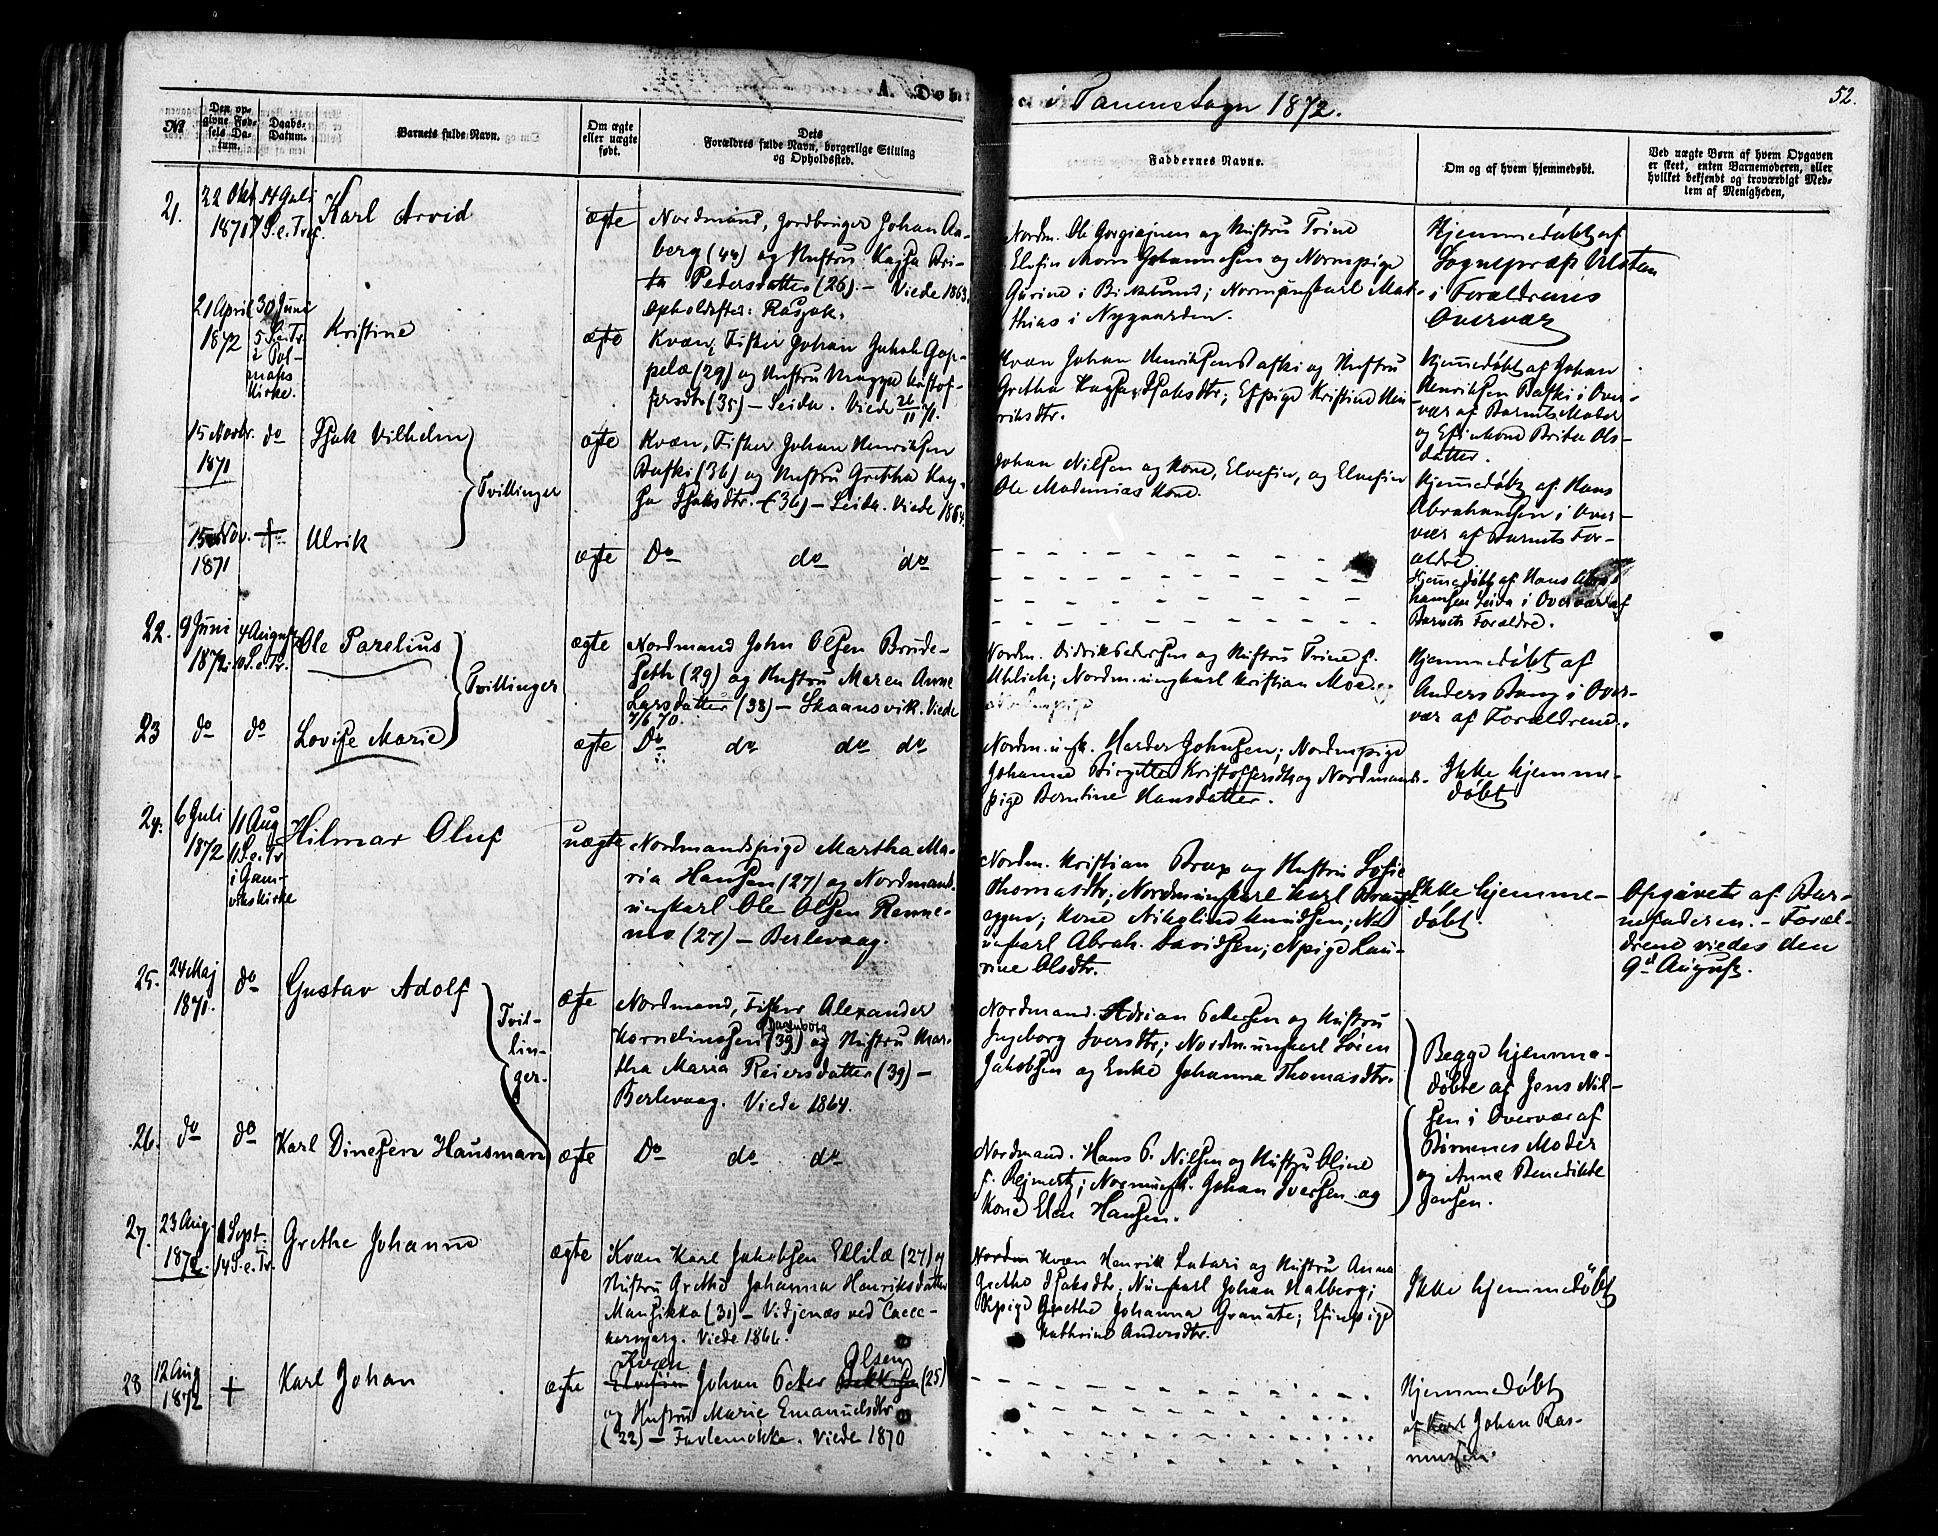 A. Døbt
i Tanens Sogn 1872.
52.
№
Den opgivne Fødsels Datum.
Daabs-Datum.
Barnets fulde Navn.
Om ægte eller uægte født.
Dets Forældres fulde Navn, borgerlige Stilling og Opholdssted.
Faddernes Navne.
Om og af hvem hjemmedøbt.
Ved uægte Børn af hvem Opgaven er skeet, enten Barnemoderen, eller hvilket bekjendt og troværdigt Medlem af Menigheden.
21.
22 Okt
1871
14 Juli
7 S.e.Tref.
Karl Arvid
ægte
Nordmand, Jordbruger Johan Aa-
berg (44) og Hustru Kajsa Bri-
ta Pedersdatter (26). – Viede 1863.
Opholdssted: Rasjok.
Nordm. Ole Gorgiajnen og Hustru Trine
Elvefin Morn Johannesen og Normpige
Gurine i Birklund; Normungkarl Mat-
thias i Nygaarden.
Hjemmedøbt af
Sognepræst Ulstan
i Forældrenes
Overvær
21 April
1872
30 Juni
5 S.e.Tr.
i Pol-
maks
Kirke.
Kristine
ægte
Kvæn, Fisker Johan Jakob Gop-
pela (29) og Hustru Magga Kristof-
fersdtr (35) – Seida. Viede 26/11 71.
Kvæn Johan Henriksen Bafki og Hustru
Gretha Kajsa Isaksdtr; Efpige Kristine Hen-
riksdtr.
Hjemmedøbt af Johan
Henriksen Bafki i Over-
vær af Barnets Moder
og Efinkone Brita Ols-
datter.
15 Novbr.
1871
do
Isak Vilhelm
Tvillinger
ægte
Kvæn, Fisker Johan Henriksen
Bafki (36) og Hustru Gretha Kaj-
sa Isaksdtr. (36) – Seida. Viede 1864.
Johan Nilsen og Kone, Elvefin, og Elvefin
Ole Madernias Kone.
Hjemmedøbt af Hans
Abrahamsen i Over-
vær af Barnets For-
ældre
15 Nov.
1871
+
Ulrik
ægte
Do do do
Hjemmedøbt af Hans Abra-
hamsen Seida i Overvær af
Barnets Forældre.
22.
9 Juni
1872
4 August
10 S.e.Tr.
Ole Parelius
Tvillinger
ægte
Nordmand John Olsen Brude-
seth (29) og Hustru Maren Anne
Larsdatter (38) – Skaansvik. Viede
7/6 70.
Nordm. Didrik Pedersen og Hustru Trine f.
Uhlich; Nordm. ungkarl Kristian Moe og
Hjemmedøbt af
Anders Bang i Over-
vær af Forældrene.
23
do
do
Lovise Marie
ægte
Do do do do
Nordm. ungk. Harder Johnsen; Nordmpige
Johanne Birgitte Kristoffersdtr og Nordmands-
pige Berntine Hansdatter.
Ikke hjemme-
døbt
24.
6 Juli
1872
11 Aug
11 S.e.Tr.
i Gam-
vikskirke
Hilmar Oluf
uægte
Nordmandspige Martha Ma-
ria Hansen (27) og Nordmand.
ungkarl Ole Olsen Renne-
mo (27) – Berlevaag.
Nordm. Kristian Brux og Hustru Sofie
Thomasdtr; Nordmungkarl Karl
; Kone Nikoline Knudsen; Nd
ungkarl Abrah. Davidsen; Npige Lau-
rine Olsdtr.
Ikke hjemme-
døbt.
Opgivet af Bar-
nefaderen. – Foræl-
drene viedes den
9de August.
25.
24 Maj
1871.
do
Gustav Adolf
Tvil-
lin-
ger.
ægte
Nordmand, Fisker Alexander
Korneliussen Dagenborg (39) og Hustru Mar-
tha Maria Reiersdatter (39) –
Berlevaag. Viede 1864.
Nordmand. Adrian Petersen og Hustru
Ingeborg Iversdtr; Nordm. ungkarl Søren
Jakobsen og Enke Johanna Thomasdtr.
Begge hjemme-
døbte af Jens Nil-
sen i Overvær af
Børnenes Moder
og Anne Benedikte
Jensen.
26.
do
do
Karl Dinesen Hausman
ægte
Do do do
Nordmand. Hans P. Nilsen og Hustru Oline
f. Rejmert; Normungk. Johan Iversen og
Kone Elen Hansen.
27.
23 Aug.
1872.
1 Sept.
14 S.e.Tr.
Grethe Johanne
ægte
Kvæn Karl Jakobsen Ellilæ (27) og
Hustru Grethe Johanna Henriksdatter
Mansikka (31) – Vidjenæs ved Tacec-
kernjarg. Viede 1866.
Nordm Kvæn Henrik Lutari og Hustru Anna
Grethe Isaksdtr; Nungkarl Johan Halberg;
Kvpige Grethe Johanna Granate; Efinpige
Kathrine Andersdtr.
Ikke hjemmedøbt
28
12 Aug
1872
+
Karl Johan
ægte
Kvæn Olsen
Elvefin Johan Peter (25)
og Hustru Marie Emanuelsdtr
(22) – Favlemokka. Viede 1870
Hjemmedøbt
af Karl Johan Ras-
mussen.